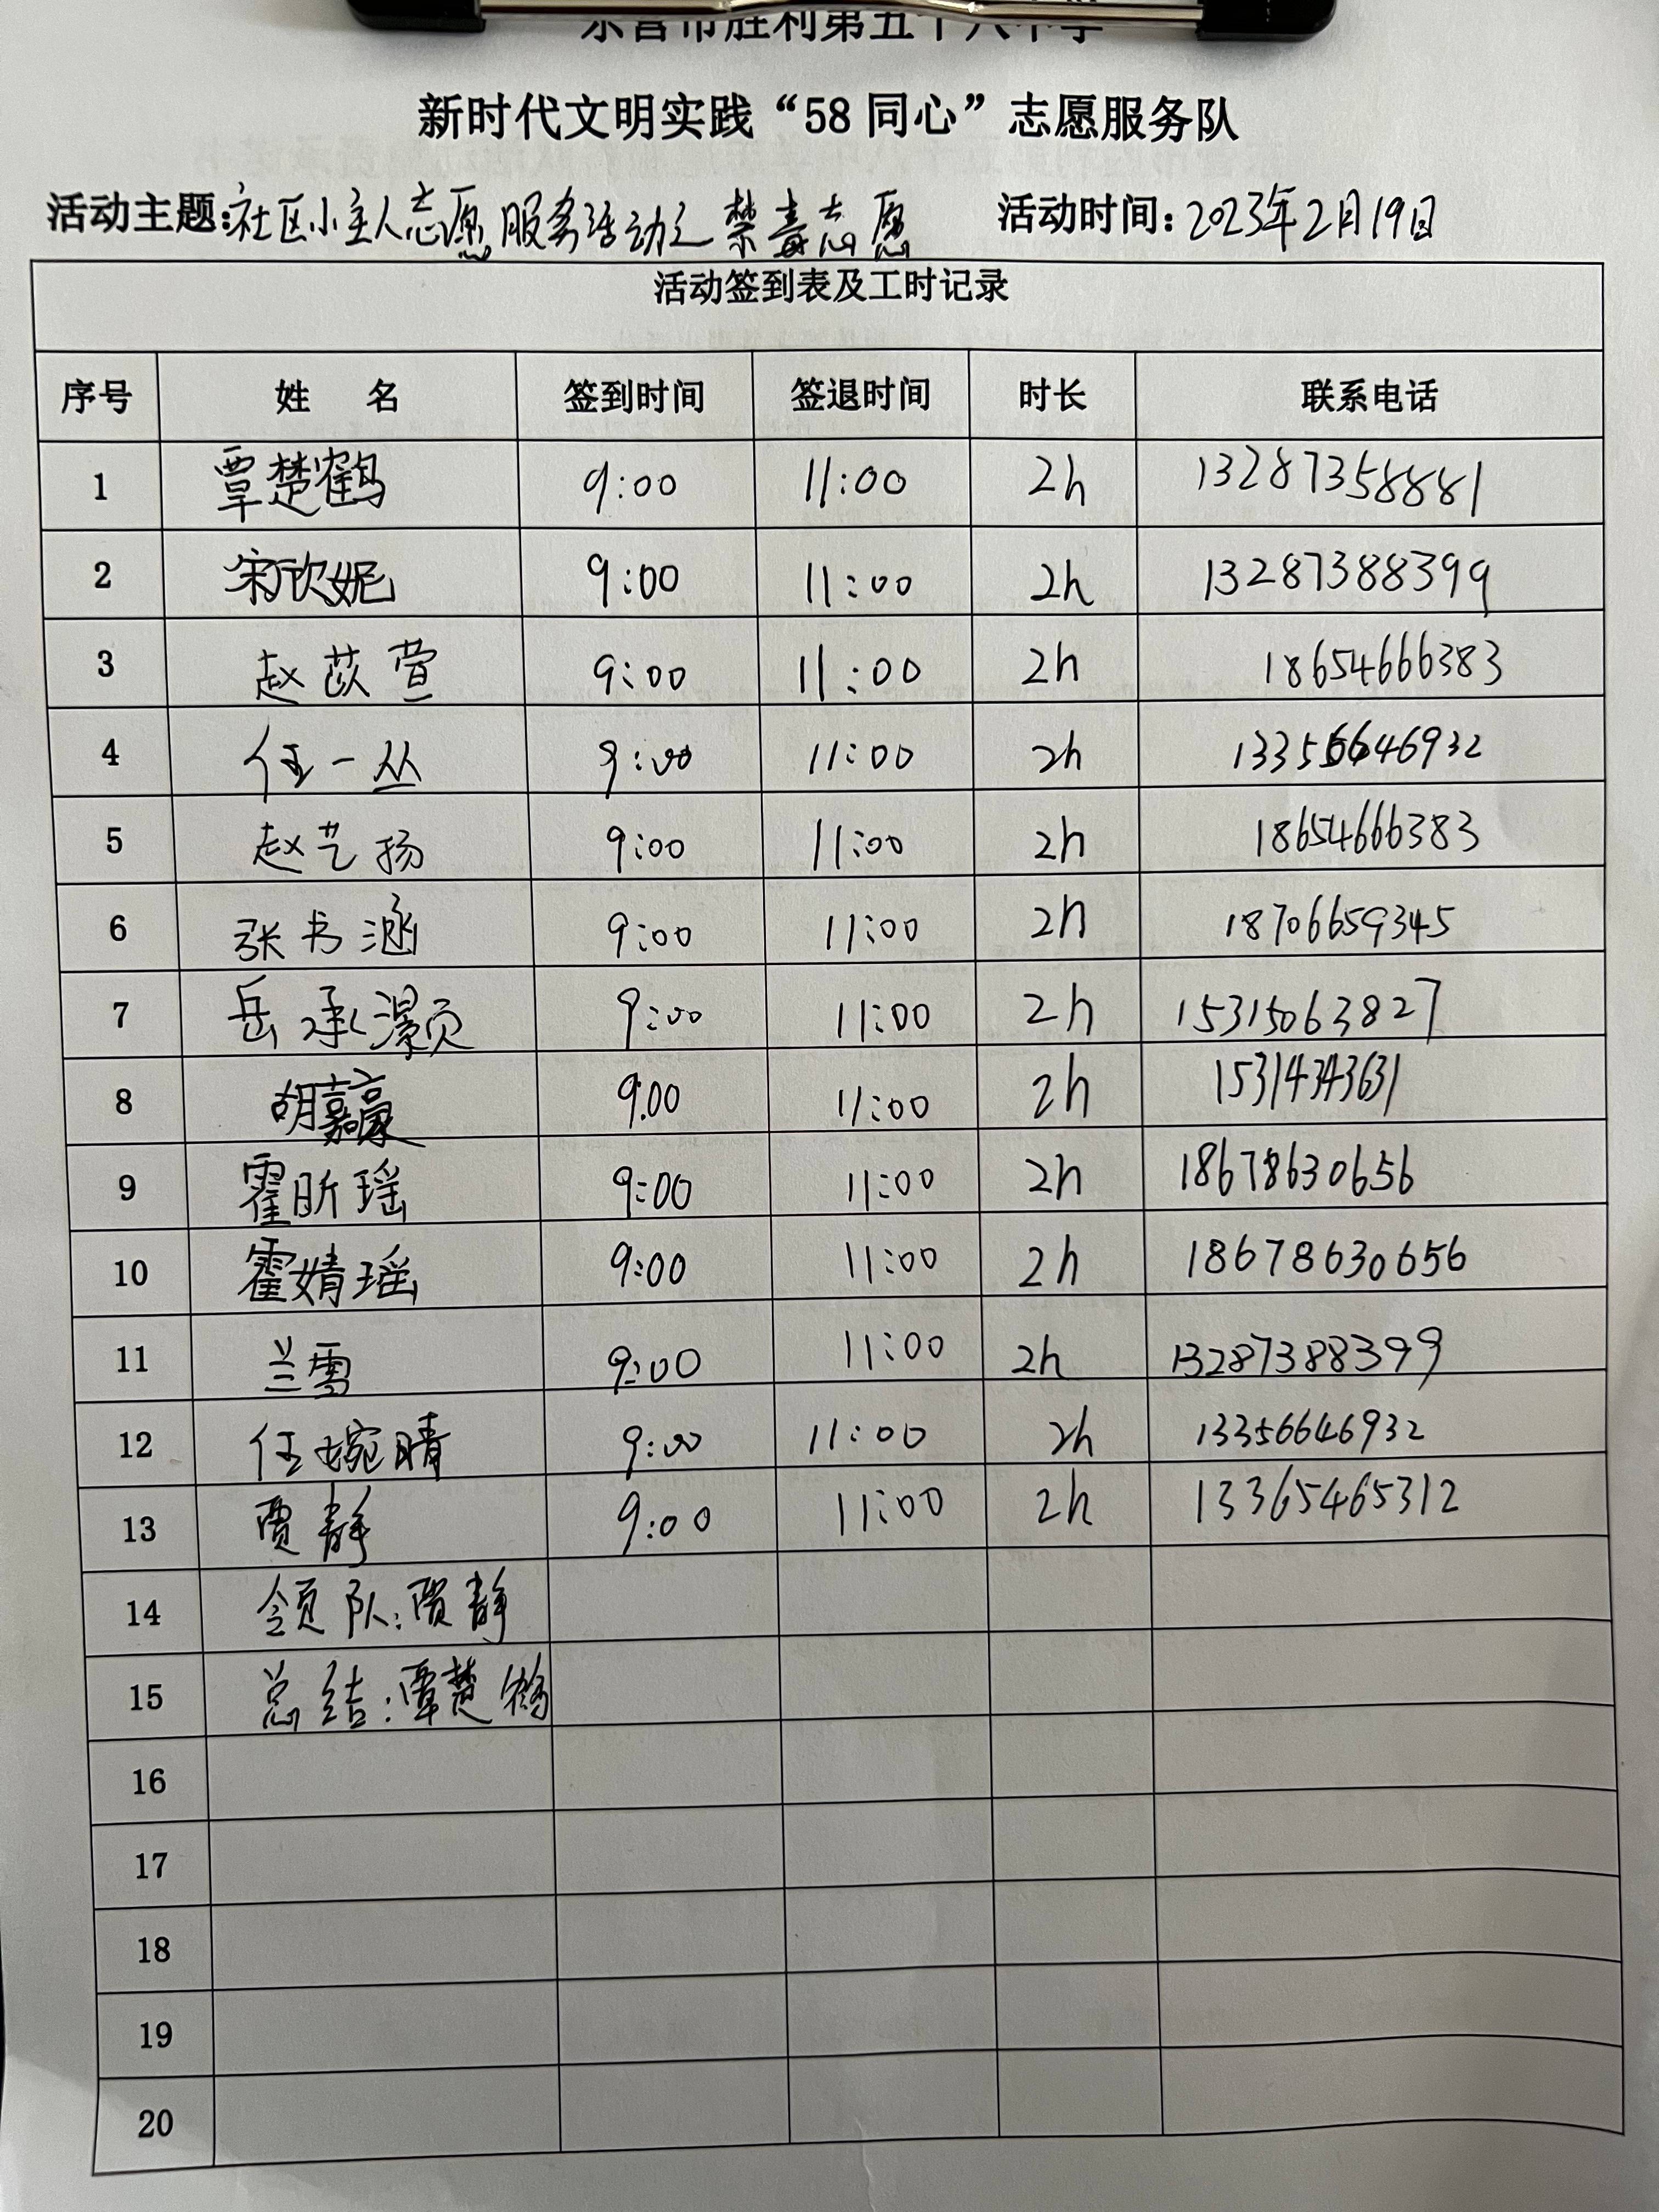 东营市胜利第五十八中学
新时代文明实践“58同心”志愿服务队
活动主题:社区小主人志愿服务活动之禁毒志愿 活动时间:2023年2月19日
活动签到表及工时记录
序号 姓 名 签到时间 签退时间 时长 联系电话
1 覃楚鹤 9:00 11:00 2h 13287358881
2 宋欣妮 9:00 11:00 2h 13287388399
3 赵苡萱 9:00 11:00 2h 18654666383
4 任一丛 9:00 11:00 2h 13356646932
5 赵艺扬 9:00 11:00 2h 18654666383
6 张书涵 9:00 11:00 2h 18706659345
7 岳承灏 9:00 11:00 2h 15315063827
8 胡嘉豪 9:00 11:00 2h 15314343631
9 霍昕瑶 9:00 11:00 2h 18678630656
10 霍婧瑶 9:00 11:00 2h 18678630656
11 兰雪 9:00 11:00 2h 13287388399
12 任婉晴 9:00 11:00 2h 13356646932
13 贾静 9:00 11:00 2h 13365465312
14 领队:贾静
15 总结:覃楚鹤
16
17
18
19
20